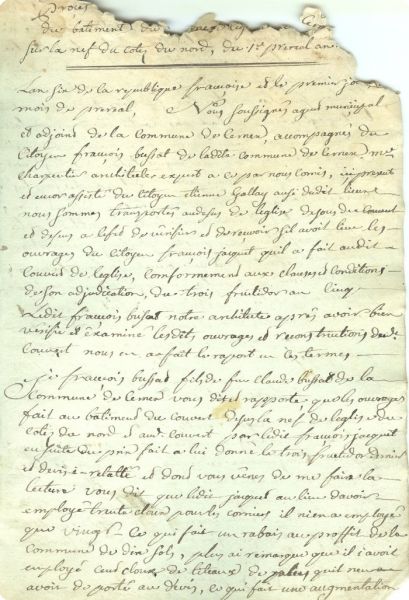 Proces
du batiment du
sur la nef du coté du nord, du 1er prereal an
L'an six de la republique francoise et le premier jour
mois de prereal, Nous soussignés agent municipal
et adjoint de la commune de Cerner accompagnés du
Citoyen francois bussat de ladite commune de Cerner me
charpentier architecte expert a ce par nous comis, icy present
et encor assisté du citoyen etienne Gallay aussi dudit lieu
nous sommes transportés audesus de leglise desous du couvert
et desus a lefet de verifier et de revoir sil avoit livré les
ouvrages du Citoyen francois jaquet quil a fait audit
Couvert de leglise, Comformement aux clauses et conditions
de son adjudication, du trois fruitidor an Cinq
Ledit francois bussat notre architecte aprés avoir bien
verifié et examiné lesdits ouvrages et reconstructions dudt
Couvert nous en a fait le raport en ces termes
Je francois bussat fils de feu Claude bussat de la
Commune de Cerner vous dit et rapporte que les ouvrages
fait au bâtiment du Couvert desus la nef de leglise du
coté du nord et aut. Couvert par ledit francois jaquet
ensuite du prix fait a lui donné le trois fruitidor dernier
et devis relatté et dont vous venés de me faire la
lecture vous dit que ledit jaquet au lieu davoir
employé trente cloux pour les cornies il nien a employé
que vingt Ce qui fait un rabais au proffit de la
Commune de dix sols, plus ai remarqué que il i avoit
employé cent cloux de tilleaux de plus quil nen
avoit de porté au devis, ce qui fait une augmentation